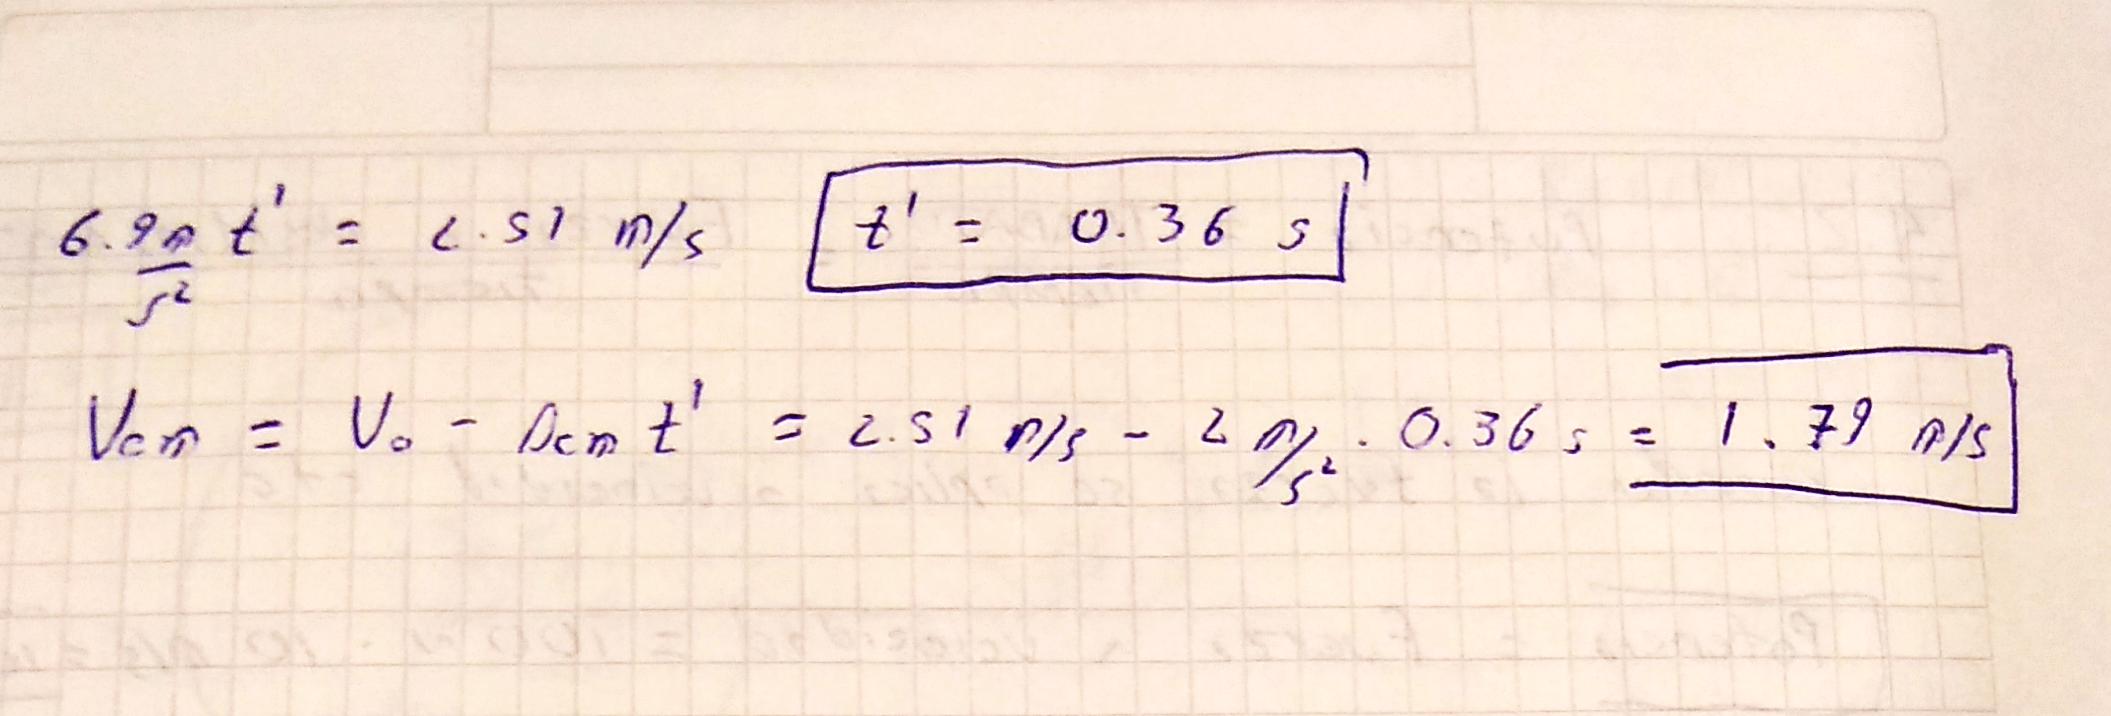 6.9 m/s² t' = 2.51 m/s t' = 0.36 s
Vcm = V₀ - acm t' = 2.51 m/s - 2 m/s² · 0.36 s = 1.79 m/s